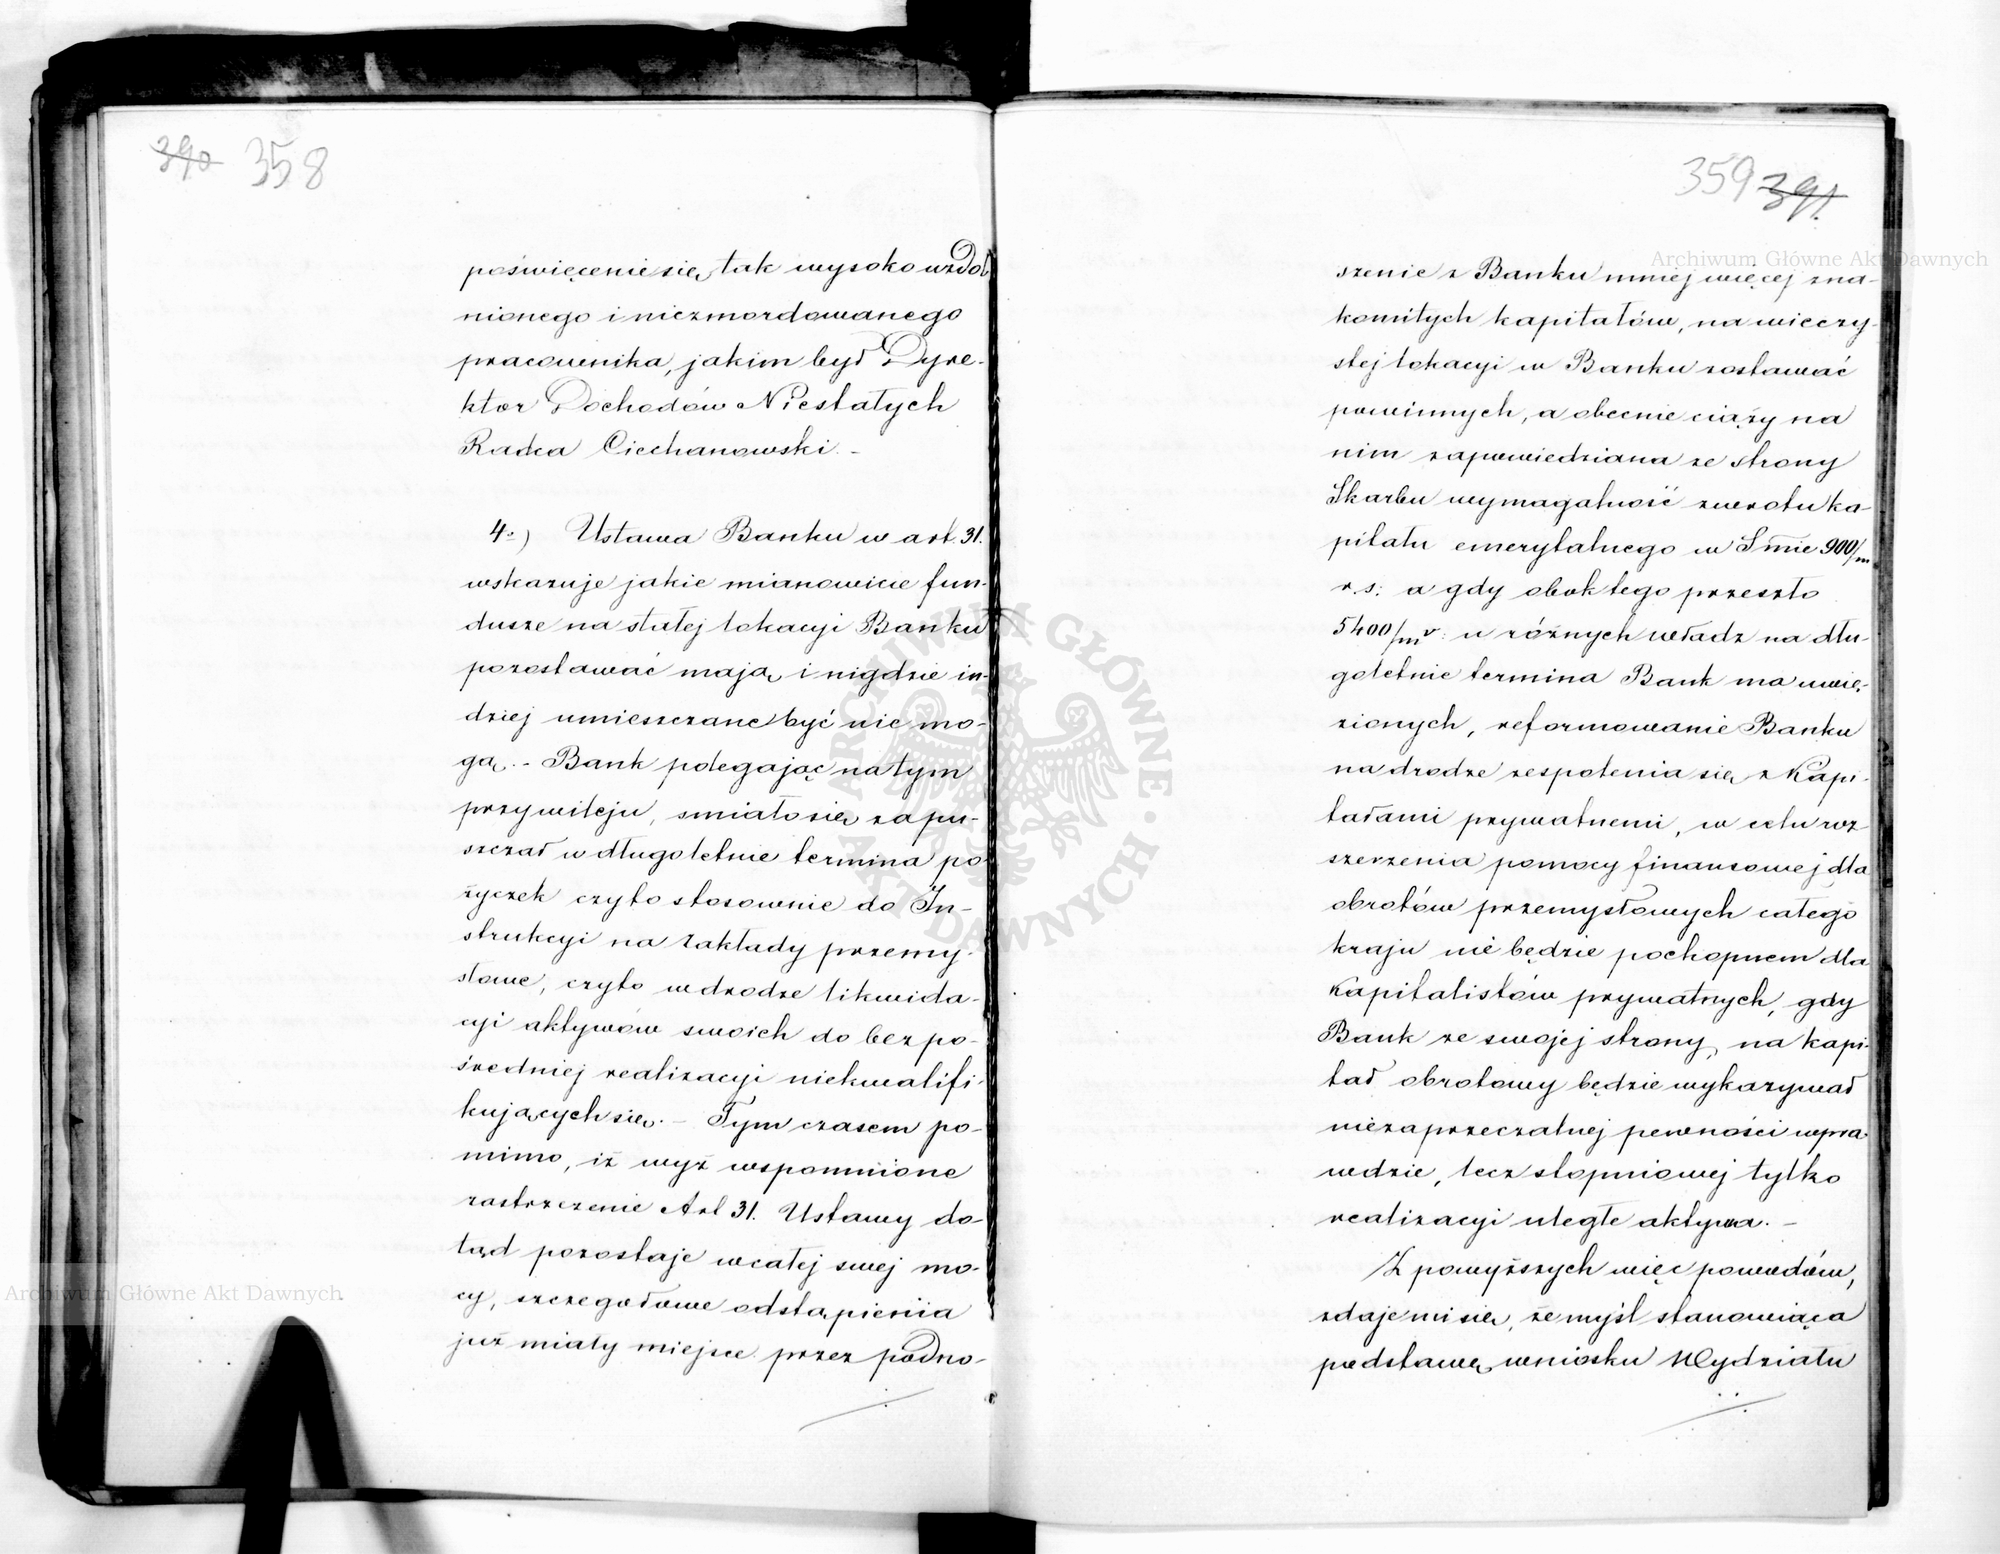 390 358
poświęcenie się, tak wysoko uzdol
nionego i niezmordowanego
pracownika, jakim był Dyre-
ktor Dochodów Niestałych
Radca Ciechanowski. -
4o) Ustawa Banku w art. 31.
wskazuje jakie mianowicie fun-
dusze na stałej lokacyi Banku
pozostawać mają, i nigdzie in-
dziej umieszczane być nie mo-
gą. - Bank polegając na tym
przywileju, śmiało się zapu-
szczał w długoletnie termina po
życzek czyto stosownie do In-
strukcyi na zakłady przemy-
słowe, czyto w drodze likwida-
cyi aktywów swoich do bezpo-
średniej realizacyi niekwalifi-
kujących się. - Tym czasem po-
mimo, iż wyż wspomnione
zastrzeżenie Art 31. Ustawy do-
tąd pozostaje w całej swej mo-
cy, szczegółowe odstąpieniia
już miały miejsce przez podno-
359 391.
szenie z Banku mniej więcej zna-
komitych kapitałów, na wieczy-
stej lokacyi w Banku zostawać
powinnych, a obecnie ciąży na
nim zapowiedziana ze strony
Skarbu wymagalność zwrotu ka-
pitału emerytalnego w Smie 900/m
r.s: a gdy obok tego przeszło
5400/m r: u różnych władz na dłu-
goletnie termina Bank ma uwię-
zionych, reformowanie Banku
na drodze zespolenia się z Kapi-
tałami prywatnemi, w celu roz
szerzenia pomocy finansowej dla
obrotów przemysłowych całego
kraju nie będzie pochopnem dla
Kapitalistów prywatnych, gdy
Bank ze swojej strony, na kapi-
tał obrotowy będzie wykazywał
niezaprzeczalnej pewności wpra
wdzie, lecz stopniowej tylko
realizacyi uległe aktywa. -
Z powyższych więc powodów,
zdaje mi się, że myśl stanowiąca
podstawę wniosku Wydziału
Archiwum Główne Akt Dawnych
Archiwum Główne Akt Dawnych
ARCHIWUM GŁÓWNE AKT DAWNYCH